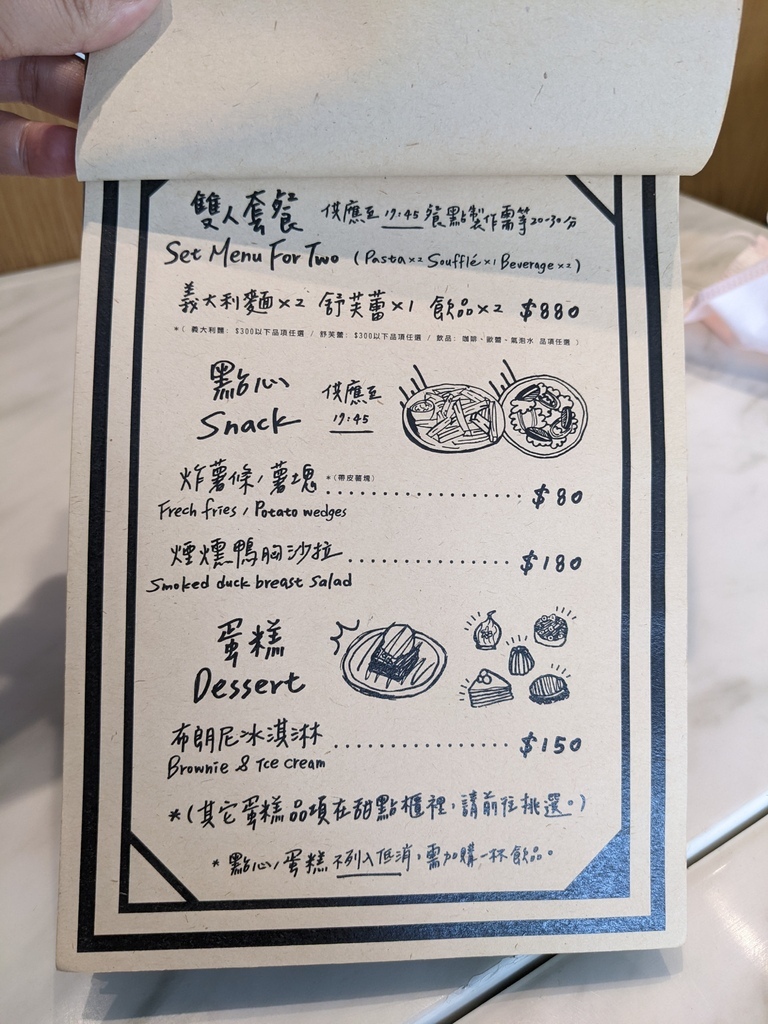 雙人套餐 供應至 19:45 餐點製作需等20-30分
Set Menu For Two (Pasta×2 Soufflé×1 Beverage×2)
義大利麵×2 舒芙蕾×1 飲品×2 $880
*( 義大利麵: $300以下品項任選 / 舒芙蕾: $300以下品項任選 / 飲品: 咖啡、歐蕾、氣泡水 品項任選 )
點心 供應至
Snack 19:45
炸薯條/薯塊 *(帶皮薯塊) $80
Frech fries / Potato wedges
煙燻鴨胸沙拉 $180
Smoked duck breast Salad
蛋糕
Dessert
布朗尼冰淇淋 $150
Brownie & Ice cream
*(其它蛋糕品項在甜點櫃裡,請前往挑選。)
*點心/蛋糕 不列入低消,需加購一杯飲品。